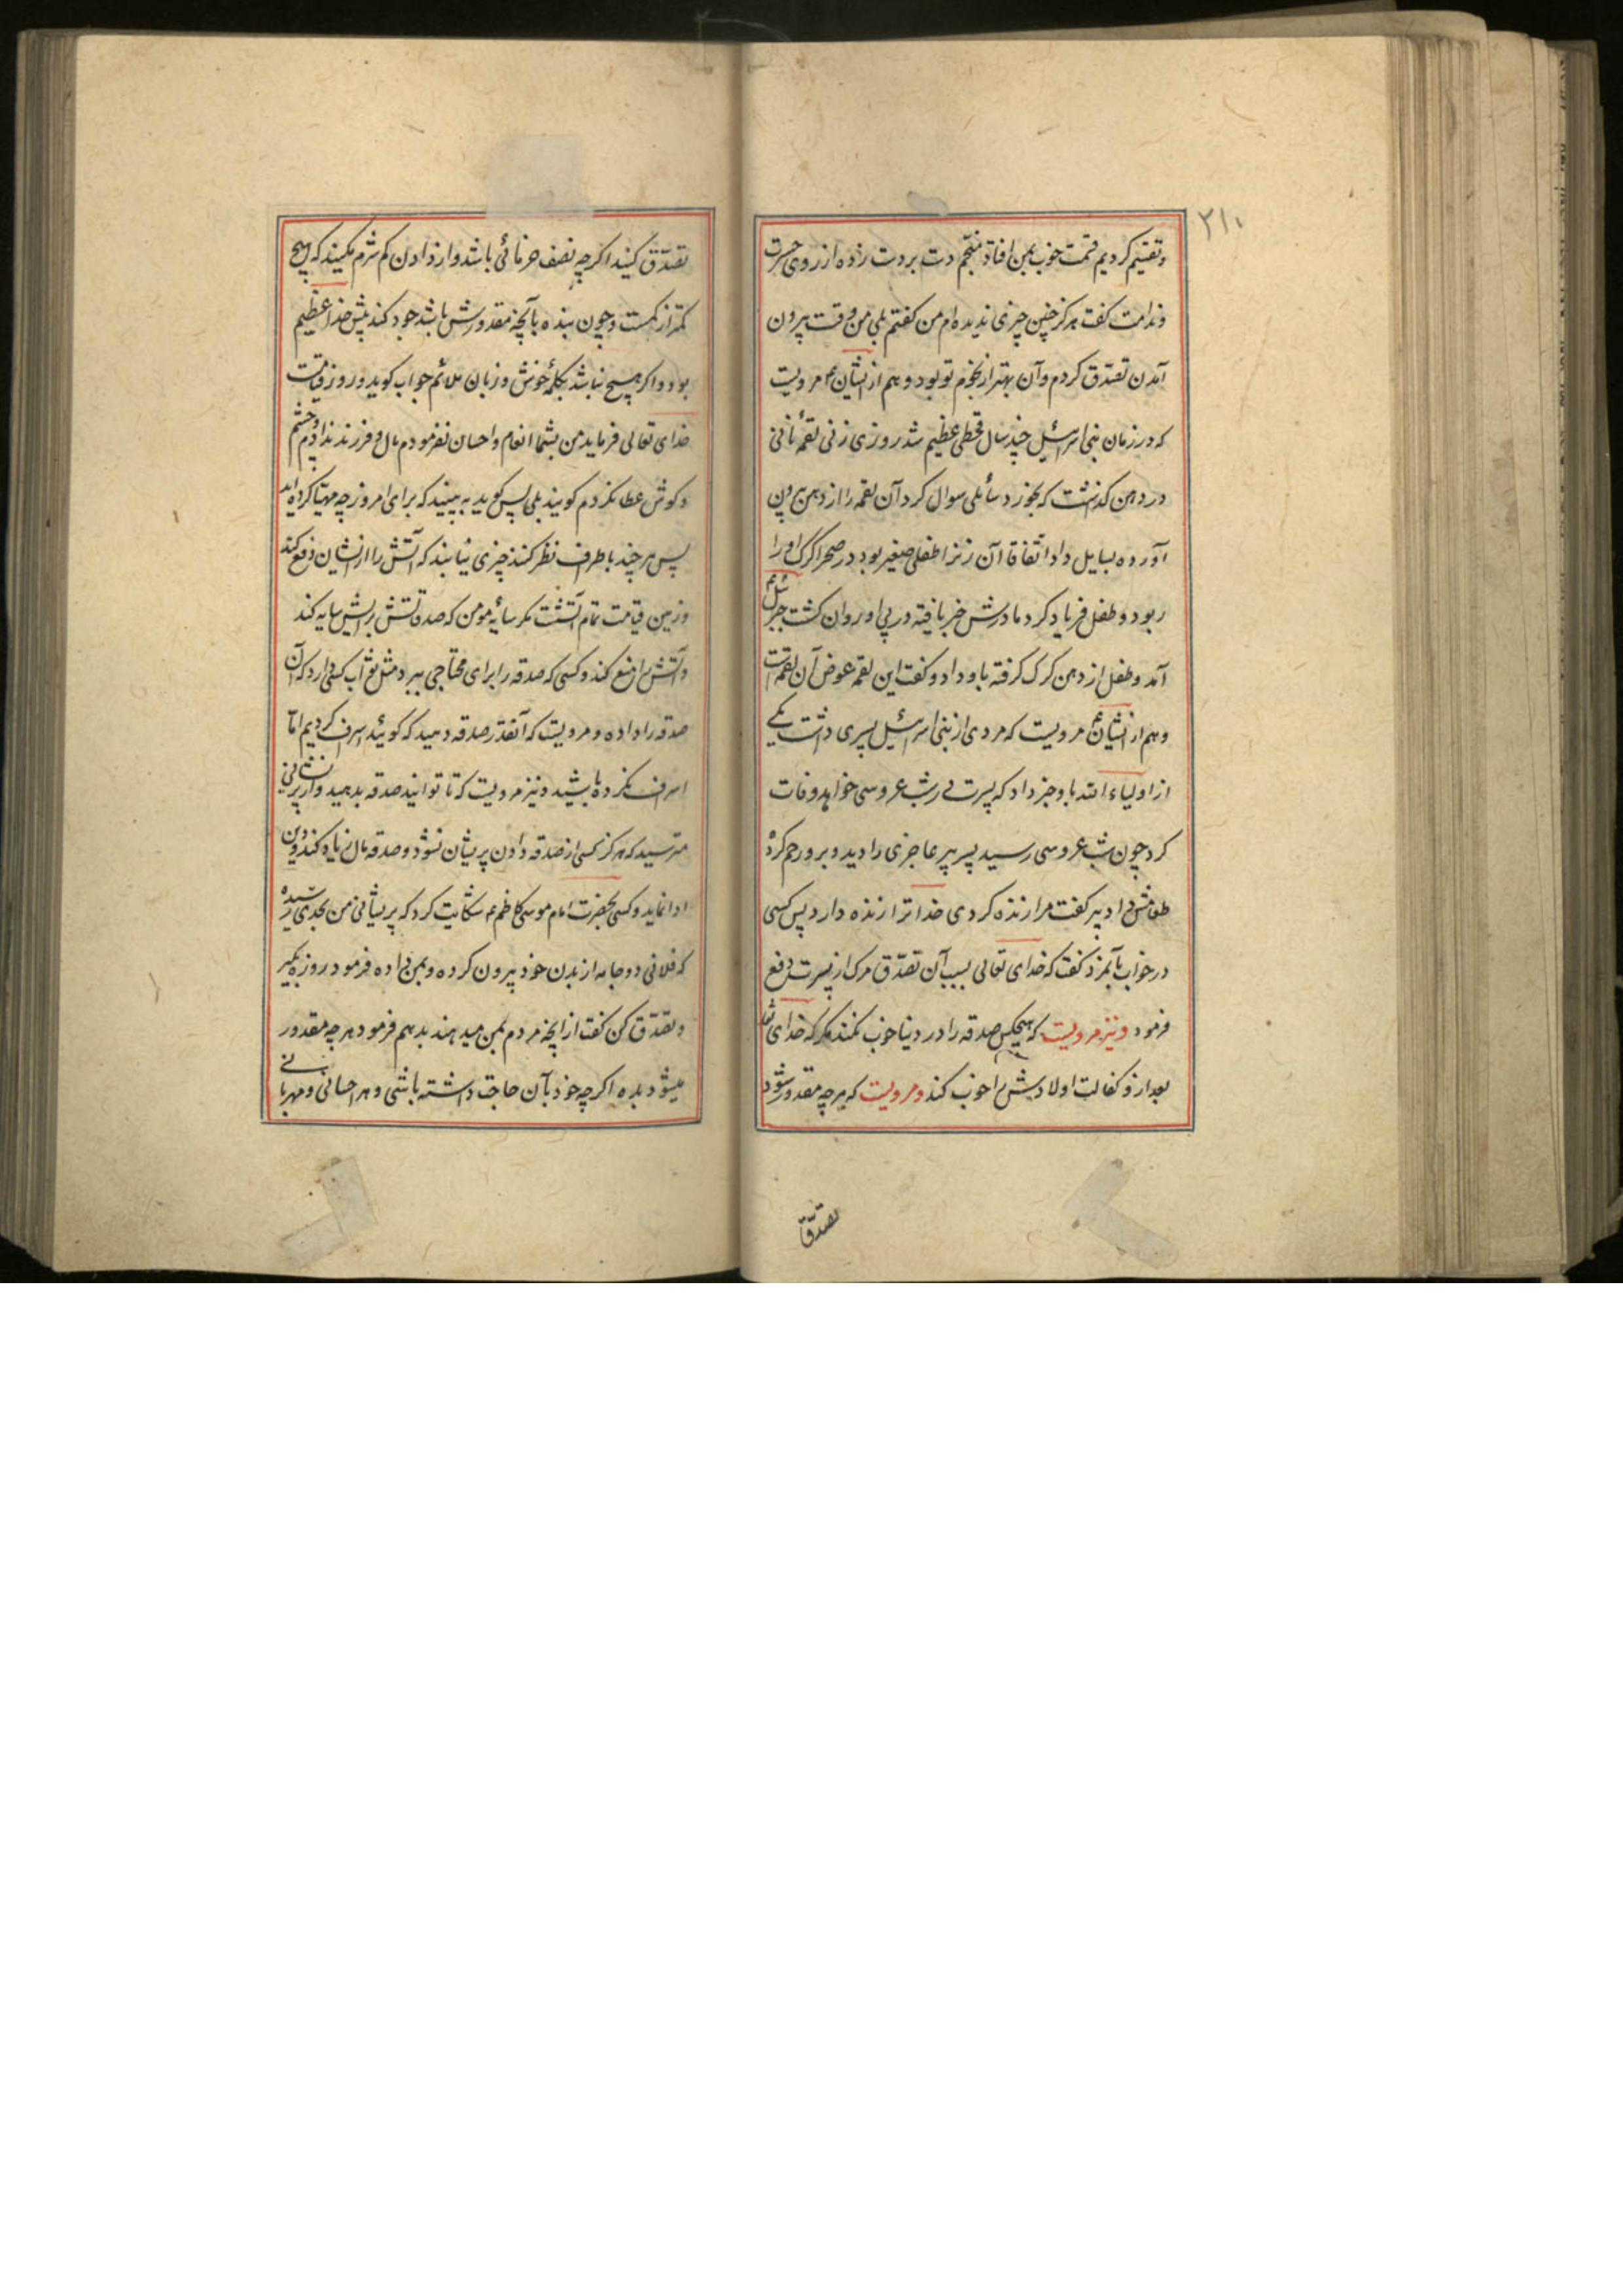 ۲۱۰
و تقسیم کردیم قسمت خوب بمن افتاد منجم دست بر دست زده از روی حسرت
و ندامت گفت هرگز چنین چیزی ندیده ام من گفتم بلی من وقت بیرون
آمدن تصدق کردم و آن بهتر از نجوم تو بود و هم از ایشان ع مرویست
که در زمان بنی اسرائیل چند سال قحطی عظیم شد روزی زنی لقمه نانی
در دهن گذاشت که بخورد سائلی سوال کرد آن لقمه را از دهن بیرون
آورده بسایل داد اتفاقا آن زن را طفلی صغیر بود در صحرا گرگ او را
ربود و طفل فریاد کرد مادرش خبر یافته در پی او روان گشت جبرئیل ع
آمد و طفل از دهن گرگ گرفته باو داد و گفت این لقمه عوض آن لقمه است
و هم از ایشان ع مرویست که مردی از بنی اسرائیل پسری داشت یکی
از اولیاء الله باو خبر داد که پسرت در شب عروسی خواهد وفات
کرد چون شب عروسی رسید پسر پیر عاجزی را دید و برو رحم کرده
طعامش داد پیر گفت مرا زنده کردی خدا ترا زنده دارد پس کسی
در خواب بآنمرد گفت که خدای تعالی بسبب آن تصدق مرگ از پسرت دفع
فرمود و نیز مرویست که هیچکس صدقه را در دنیا خوب نکند مگر که خدای تعا
بعد از و کفالت اولادش را خوب کند و مرویست که هر چه مقدور شود
تصدق
تصدق کنید اگر چه نصف خرمائی باشد و از دادن کم شرم مکنید که هیچ
کمتر از کمست و چون بنده بآنچه مقدورش باشد جود کند پیش خدا عظیم
بود و اگر هیچ نباشد بکلمه خوش و زبان ملائم جواب گوید و روز قیامت
خدای تعالی فرماید من بشما انعام و احسان نفرمودم مال و فرزند ندادم و چشم
و گوش عطا نکردم گویند بلی پس گوید به بینید که برای امروز چه مهیا کرده اید
پس هر چند باطراف نظر کنند چیزی نیابند که آتش را از ایشان دفع کند
و زمین قیامت تمام آتشست مگر سایه مومن که صدقاتش برایش سایه کند
و آتش را منع کند و کسی که صدقه را برای محتاجی ببرد مثل ثواب کسی دارد که آن
صدقه را داده و مرویست که آنقدر صدقه دهید که گوئید اسراف کردیم اما
اسراف نکرده باشید و نیز مرویست که تا توانید صدقه بدهید و از پریشانی
مترسید که هرگز کسی از صدقه دادن پریشان نشود و صدقه مال زیاده کند و دین
ادا نماید و کسی بحضرت امام موسی کاظم ع شکایت کرد که پریشانی من بحدی رسیده
که فلانی دو جامه از بدن خود بیرون کرده و بمن داده فرمود روزه بگیر
و تصدق کن گفت از آنچه مردم بمن میدهند بدهم فرمود هر چه مقدور
میشود بده اگر چه خود بآن حاجت داشته باشی و هر احسانی و مهربانی